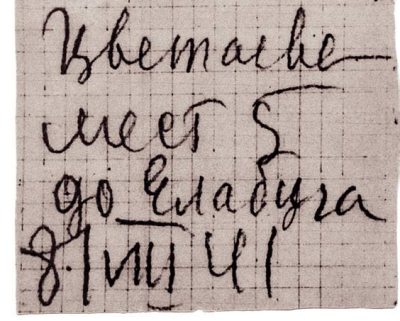 Цветаева
мест 5
до Елабуга
8/VIII 41